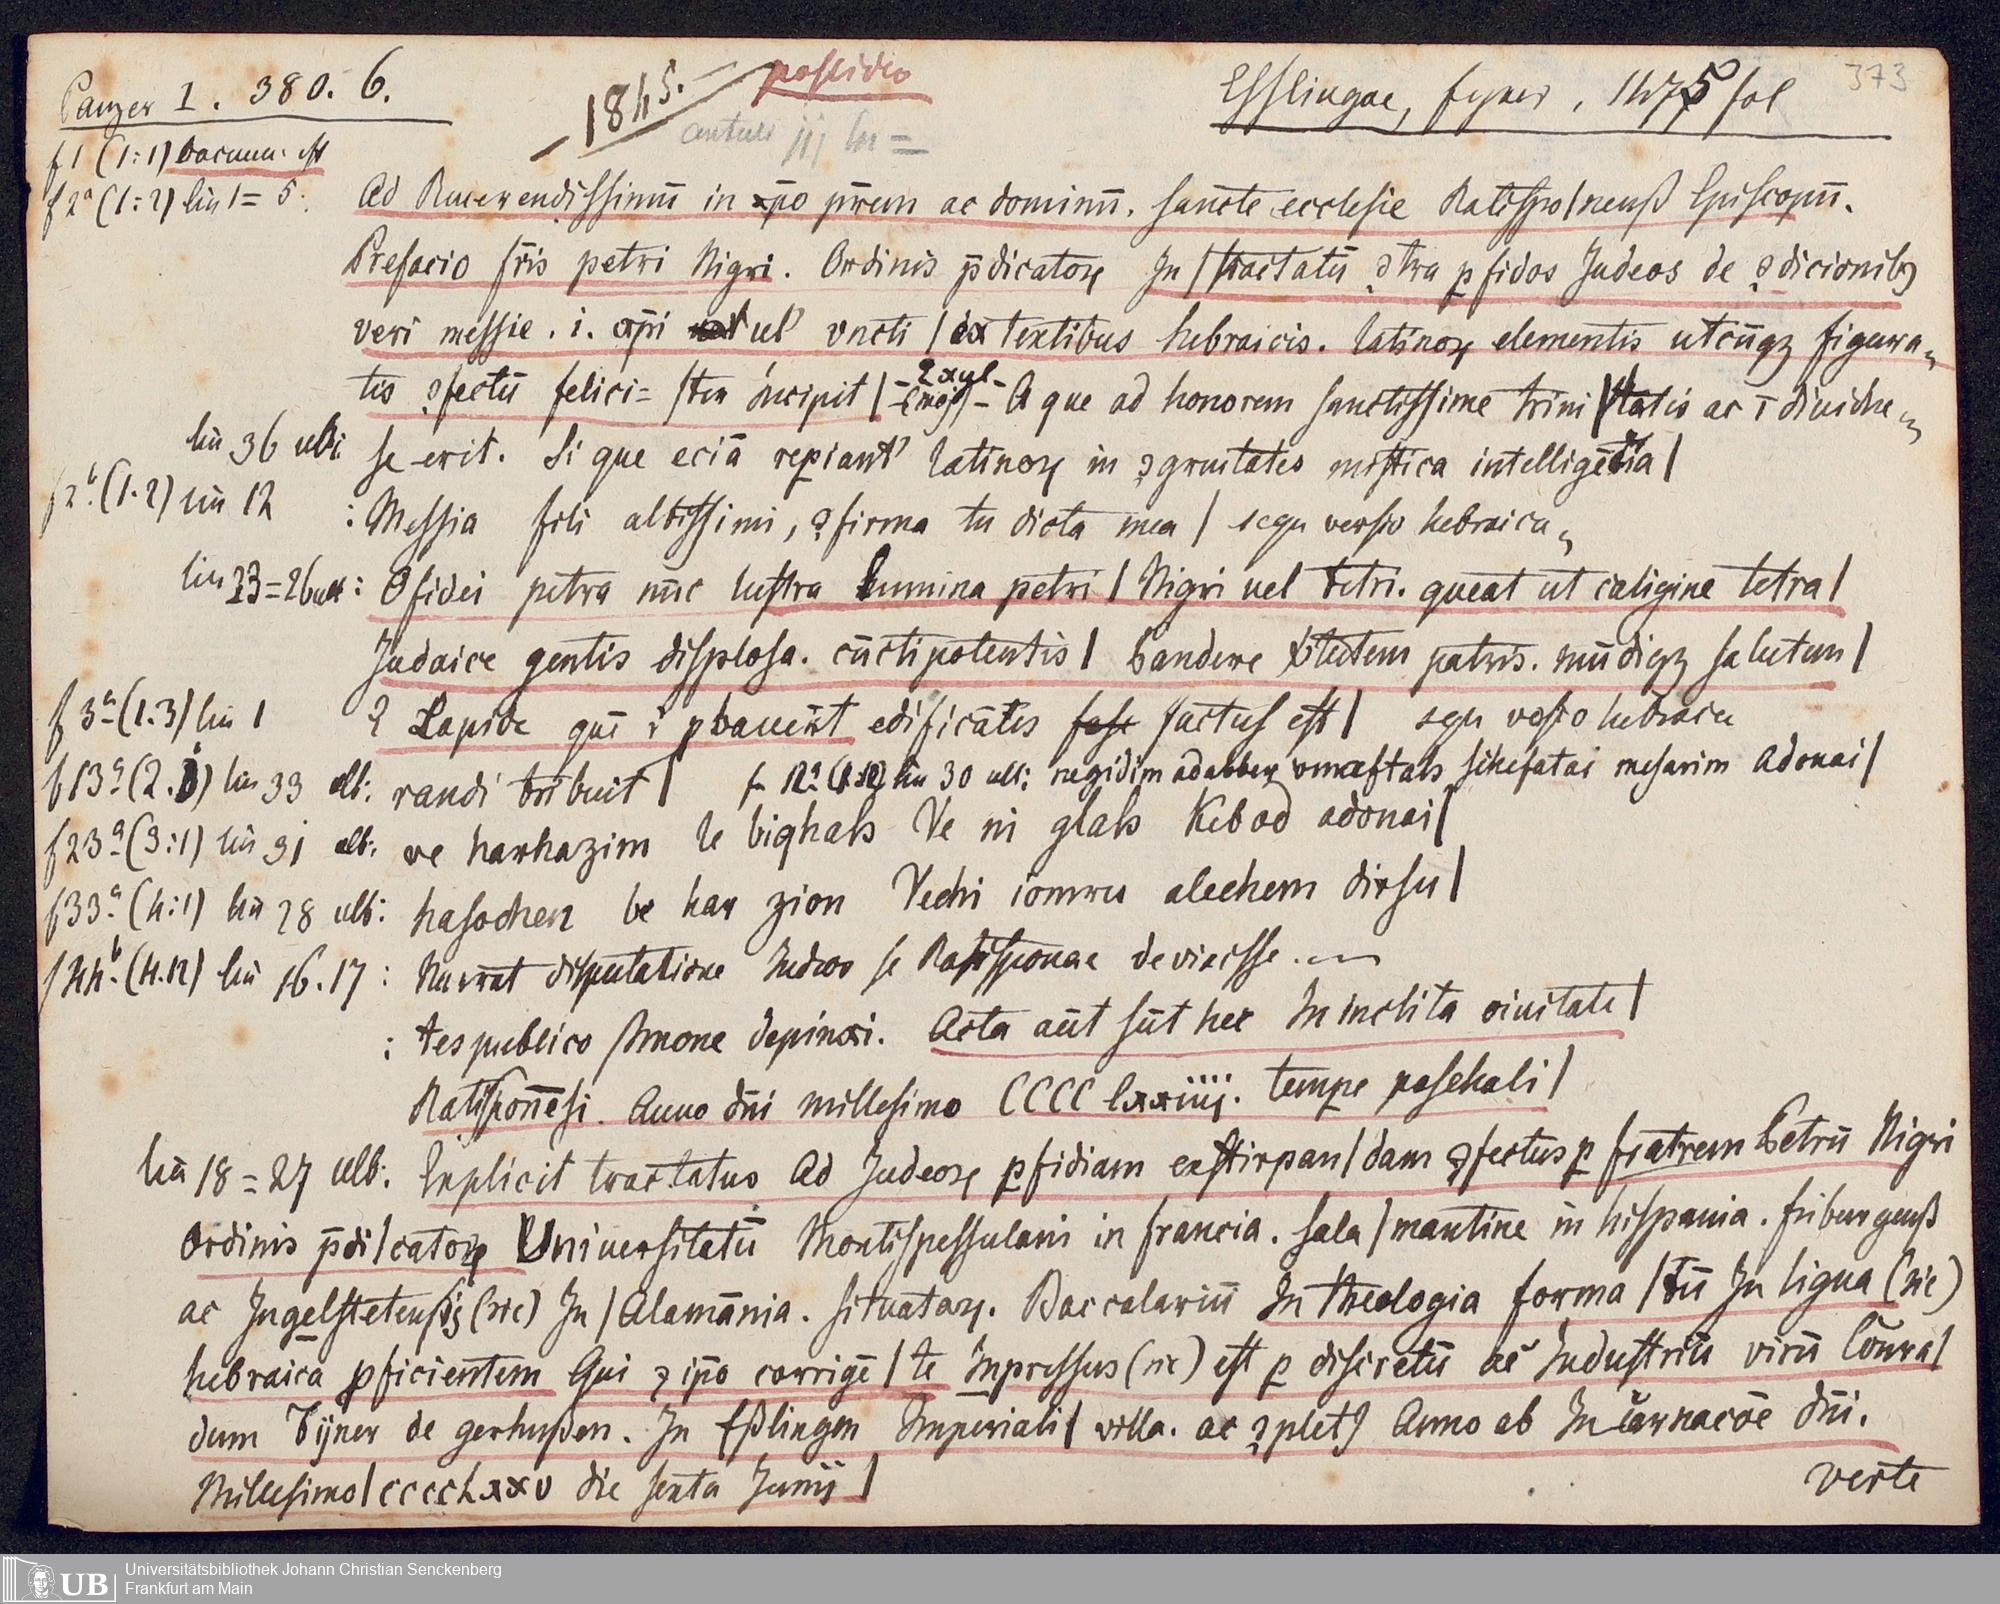 Panzer I. 380. 6.
1845. possideo
Esslingae, fyner, 1475 fol
373
f 1 (1:1) vacuum est
f 2ª (1:2) lin 1=5. Ad Reuerendissimū in xp̄o pr̄em ac dominū. sancte ecclesie Ratispo/nenß Episcopū.
Prefacio fr̄is petri Nigri. Ordinis p̄dicatoꝝ In / tractatū ꝯtra ꝑfidos Judeos de ꝯdicionibꝫ
veri messie. i. xp̄i uel' vncti / ex textibus hebraicis. latinoꝝ elementis utcūqꝫ figura-
tis ꝯfectū felici=/ter incipit / A que ad honorem sanctissime trini/tatis ac ī diuidue
lin 36 ult: se erit. Si que eciā repiant' latinoꝝ in ꝯgruitates mistica intelligētia /
f 2ᵇ (1.2) lin 12 : Messia fili altissimi, ꝯfirma tu dicta mea / sequ versio hebraica
lin 23=26 ult : O fidei petra nūc lustra lumina petri / Nigri uel tetri. queat ut caligine tetra /
Judaice gentis displosa. cūctipotentis / pandere patris. mūdiqꝫ salutem /
f 3ª (1.3) lin 1 Lapide quē edificātes fase factus est / sequ versio hebraica
f 13ª (2.) lin 33 ult: randi tribuit / f 12ª lin 30 ult: negidim adabber vmaftah sihefatai mesarim Adonai /
f 23ª (3:1) lin 31 ult: ve harhazim le biqhah Ve ni glah Kebod adonai /
f 33ª (4:1) lin 28 ult: hasochen be har zion Vechi iomru alechem dirsu /
f 44ᵇ (4.12) lin 16.17 : Narrat disputatione Judeos se Ratisponae devicisse.
: tes publico smone depinxi. Acta aūt sūt hec In inclita ciuitate /
Ratisponēsi. Anno dn̄i millesimo CCCC lxxiiij. tempe paschali /
lin 18=27 ult: Explicit tractatus Ad Judeoꝝ ꝑfidiam exstirpan/dam ꝯfectus ꝑ fratrem Petrū Nigri
Ordinis p̄di/catoꝝ Vniuersitatū Montispessulani in francia. sala/mantine in hispania. friburgenß
ac Ingelstetensis (sic) In / Alamānia. situataꝝ. Baccalariū In theologia forma/tū In ligua (sic)
hebraica ꝑficientem Qui ꝯ ip̄o corrigē/te Inpressus (sic) est ꝑ discretū ac Industriū virū Cōnra/
dum Fyner de gerhußen. In Eßlingen Imperiali / villa. ac ꝯplet9 Anno ab Incarnacōe dn̄i.
Millesimo / ccccLxxv die sexta Junij /
verte
Universitätsbibliothek Johann Christian Senckenberg
UB Frankfurt am Main